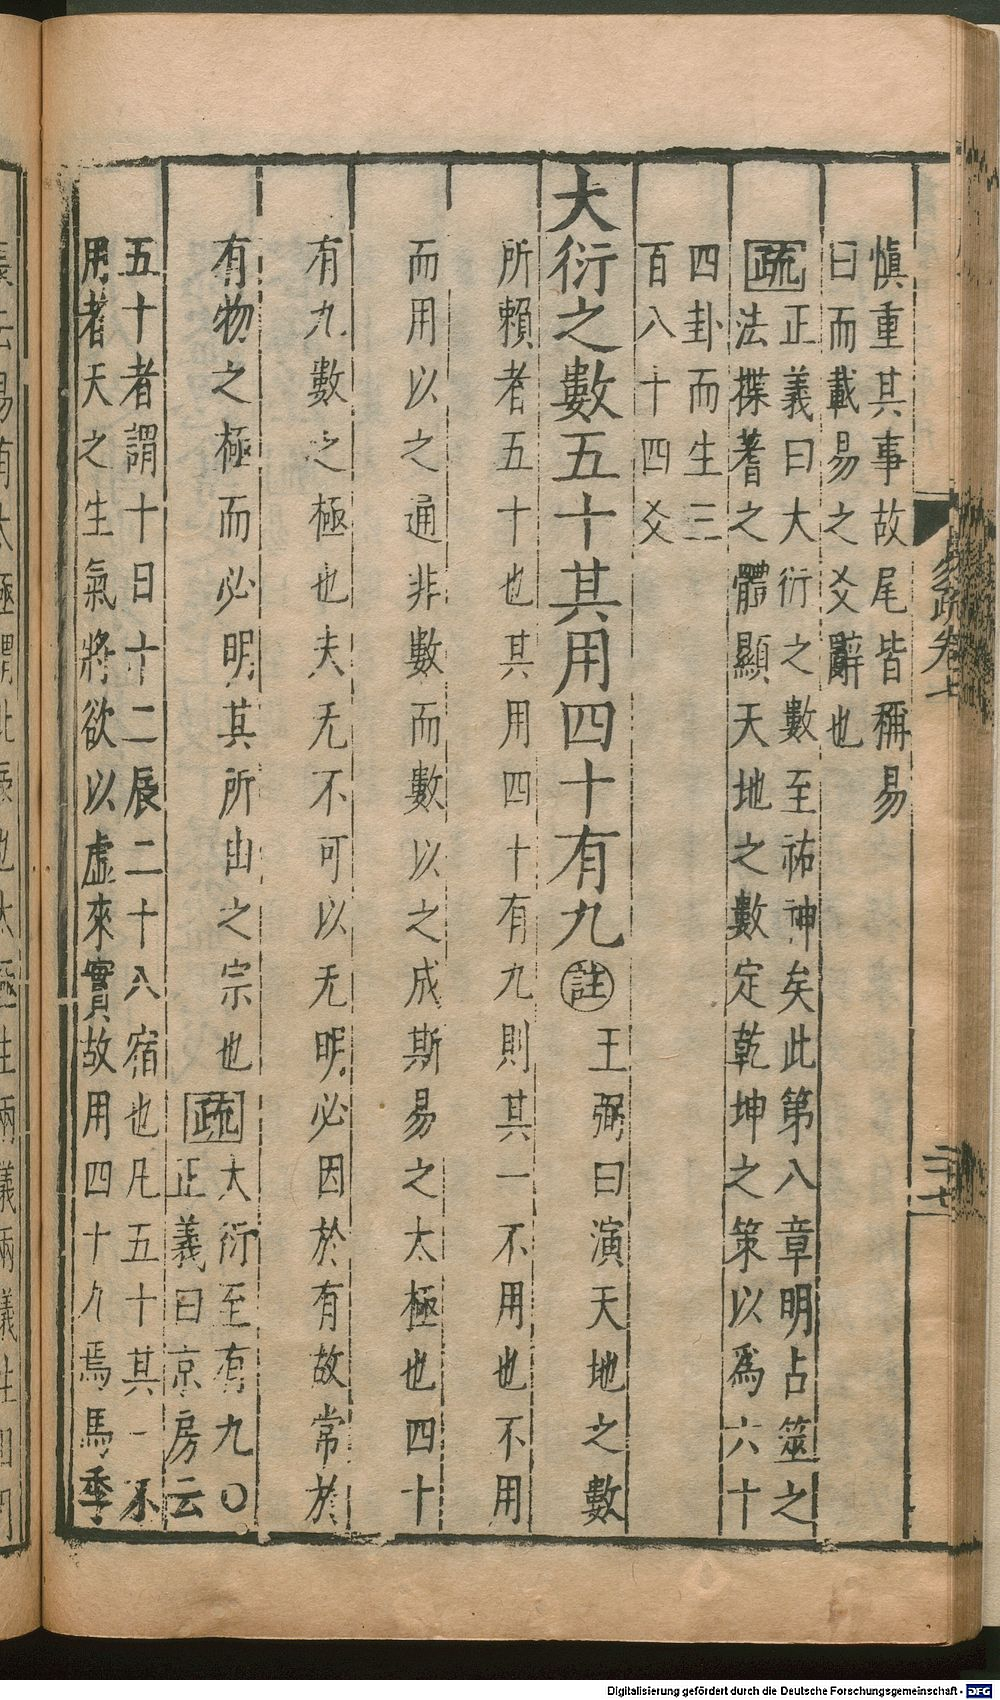 易疏卷七
二十七
慎重其事故尾皆稱易
曰而載易之爻辭也
疏
正義曰大衍之數至祐神矣此第八章明占筮之
法揲蓍之體顯天地之數定乾坤之策以爲六十
四卦而生三
百八十四爻
大衍之數五十其用四十有九註王弼曰演天地之數
所賴者五十也其用四十有九則其一不用也不用
而用以之通非數而數以之成斯易之太極也四十
有九數之極也夫无不可以无明必因於有故常於
有物之極而必明其所由之宗也疏大衍至有九〇
正義曰京房云
五十者謂十日十二辰二十八宿也凡五十其一不
用者天之生氣將欲以虛來實故用四十九焉馬季
Digitalisierung gefördert durch die Deutsche Forschungsgemeinschaft - DFG